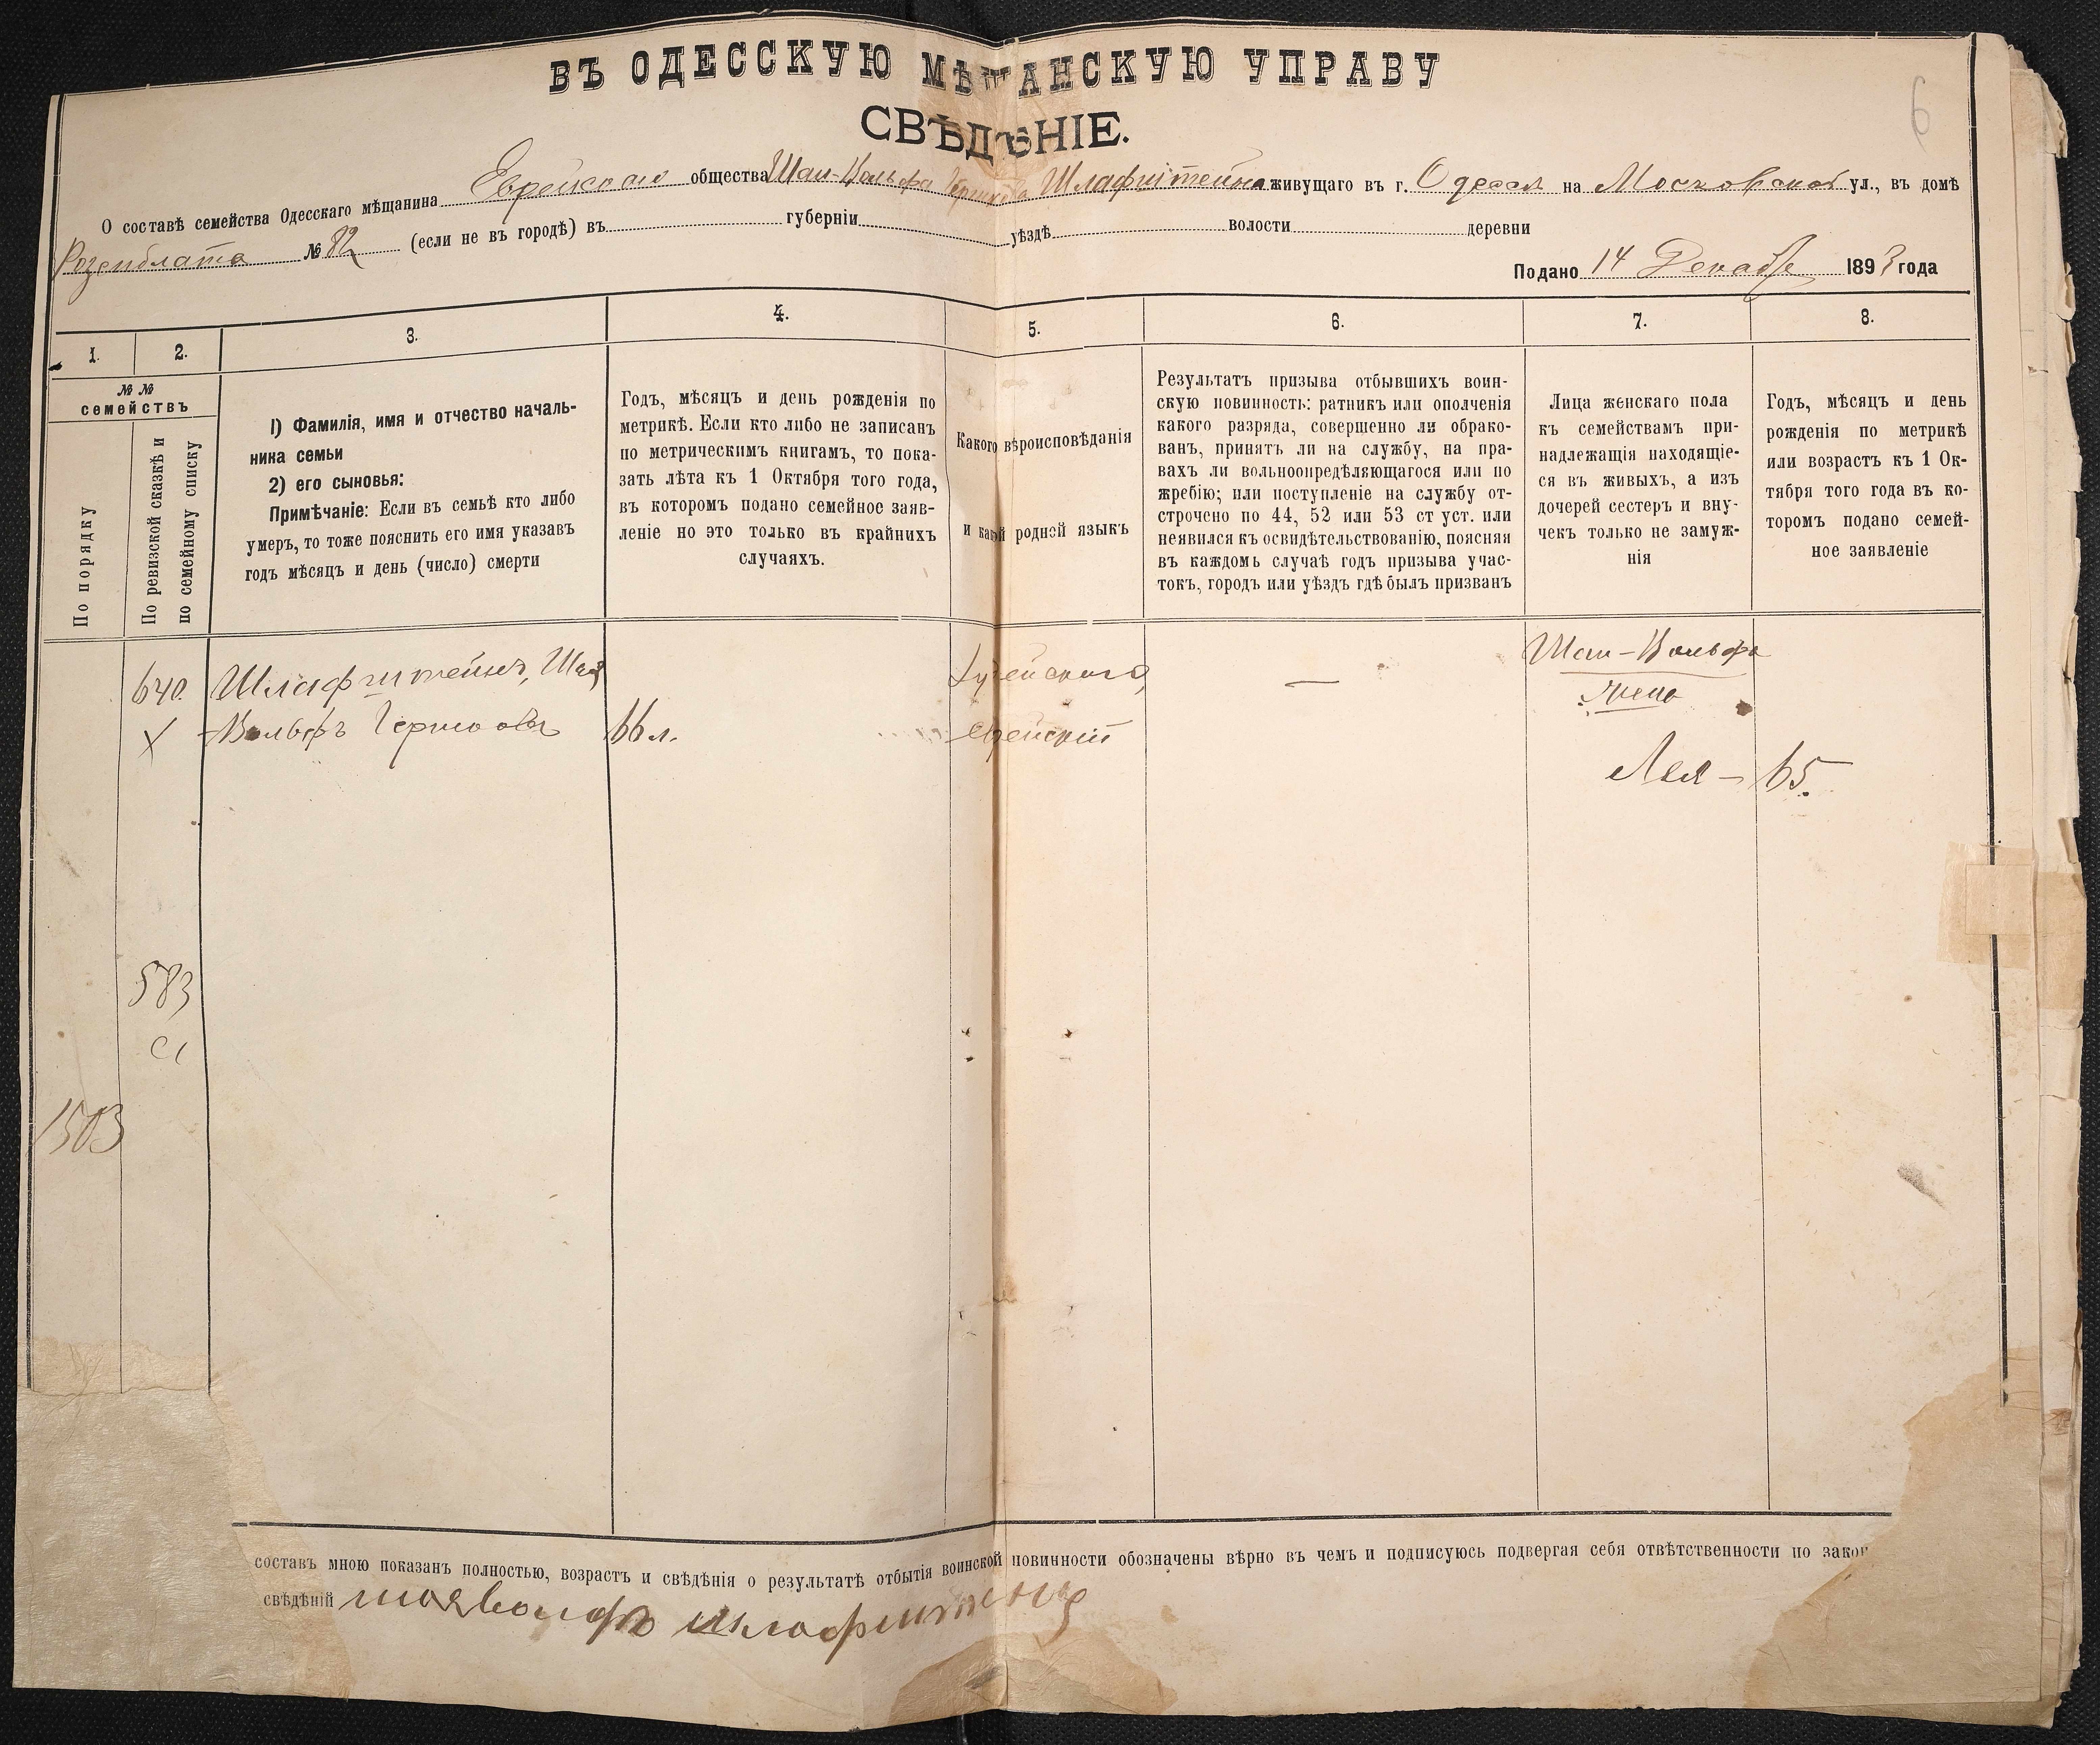 ВЪ ОДЕССКУЮ МѢЩАНСКУЮ УПРАВУ
СВѢДѢНІЕ.
6
О составѣ семейства Одесскаго мѣщанина Еврейскаго общества Шаи-Вольфа Шлафштейна живущаго въ г. Одесса на Московской ул., въ домѣ
Розенблата № 82 (если не въ городѣ) въ губерніи уѣздѣ волости деревни
Подано 14 Декабр 1893 года
1. 2. 3. 4. 5. 6. 7. 8.
№ №
семействъ
По порядку
По ревизской сказкѣ и
по семейному списку
1) Фамилія, имя и отчество началь-
ника семьи
2) его сыновья:
Примѣчаніе: Если въ семьѣ кто либо
умеръ, то тоже пояснить его имя указавъ
годъ мѣсяцъ и день (число) смерти
Годъ, мѣсяцъ и день рожденія по
метрикѣ. Если кто либо не записанъ
по метрическимъ книгамъ, то пока-
зать лѣта къ 1 Октября того года,
въ которомъ подано семейное заяв-
леніе но это только въ крайнихъ
случаяхъ.
Какого вѣроисповѣданія
и какой родной языкъ
Результатъ призыва отбывшихъ воин-
скую повинность: ратникъ или ополченія
какого разряда, совершенно ли обрако-
ванъ, принятъ ли на службу, на пра-
вахъ ли вольноопредѣляющагося или по
жребію; или поступленіе на службу от-
строчено по 44, 52 или 53 ст уст. или
неявился къ освидѣтельствованію, поясняя
въ каждомъ случаѣ годъ призыва учас-
токъ, городъ или уѣздъ гдѣ былъ призванъ
Лица женскаго пола
къ семействамъ при-
надлежащія находящіе-
ся въ живыхъ, а изъ
дочерей сестеръ и вну-
чекъ только не замуж-
нія
Годъ, мѣсяцъ и день
рожденія по метрикѣ
или возрастъ къ 1 Ок-
тября того года въ ко-
торомъ подано семей-
ное заявленіе
640. Шлафштейнъ, Шая Іудейскаго, — Шаи-Вольфа
жена
X Вольфъ 66 л. Еврейскій
Лея – 65.
583
1503
составъ мною показанъ полностью, возрастъ и свѣдѣнія о результатѣ отбытія воинской повинности обозначены вѣрно въ чемъ и подписуюсь подвергая себя отвѣтственности по закон
свѣдѣній шаявольфъ шлафштейнъ